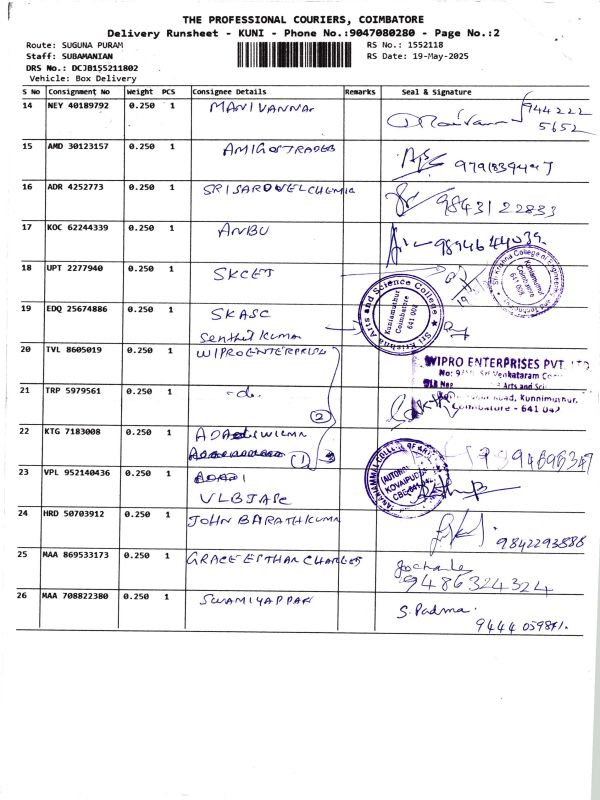 THE PROFESSIONAL COURIERS, COIMBATORE
Delivery Runsheet - KUNI - Phone No.:9047080280 - Page No.:2
Route: SUGUNA PURAM
RS No.: 1552118
Staff: SUBAMANIAN
RS Date: 19-May-2025
DRS No.: DCJB155211802
Vehicle: Box Delivery
S No Consignment No Weight PCS Consignee Details Remarks Seal & Signature
14 NEY 40189792 0.250 1 MANIVANNA
944 222
5652
15 AMD 30123157 0.250 1 AMIGOSTRADES
16 ADR 4252773 0.250 1 SRISAROVELCHEMIC
98431 22833
17 KOC 62244339 0.250 1 ANBU
9894644039
18 UPT 2277940 0.250 1 SKCET
Sri Krishna College of Engineering and Technology
Kuniamuthur
Coimbatore
641 008
19 EDQ 25674886 0.250 1 SKASC
Senthil Kumar
Sri Krishna Arts and Science College
Kuniamuthur
Coimbatore
641 008
20 TVL 8605019 0.250 1 WIPRO ENTERPRISES
WIPRO ENTERPRISES PVT. LTD
Venkataram
Arts and Sci
21 TRP 5979561 0.250 1 -do-
Road, Kunnimuthur,
Coimbatore - 641 042
2
22 KTG 7183008 0.250 1
1 3
23 VPL 952140436 0.250 1
VLBJASC
COLLEGE OF ARTS
(AUTONO
KOVAIPUDUR
CBE-641 042
24 HRD 50703912 0.250 1 JOHN BARATH KUMAR
9842293886
25 MAA 869533173 0.250 1 GRACE ESTHAR CHARLES
9486324324
26 MAA 708822380 0.250 1 SWAMIYAPPAN
S. Padma.
9444 059871.